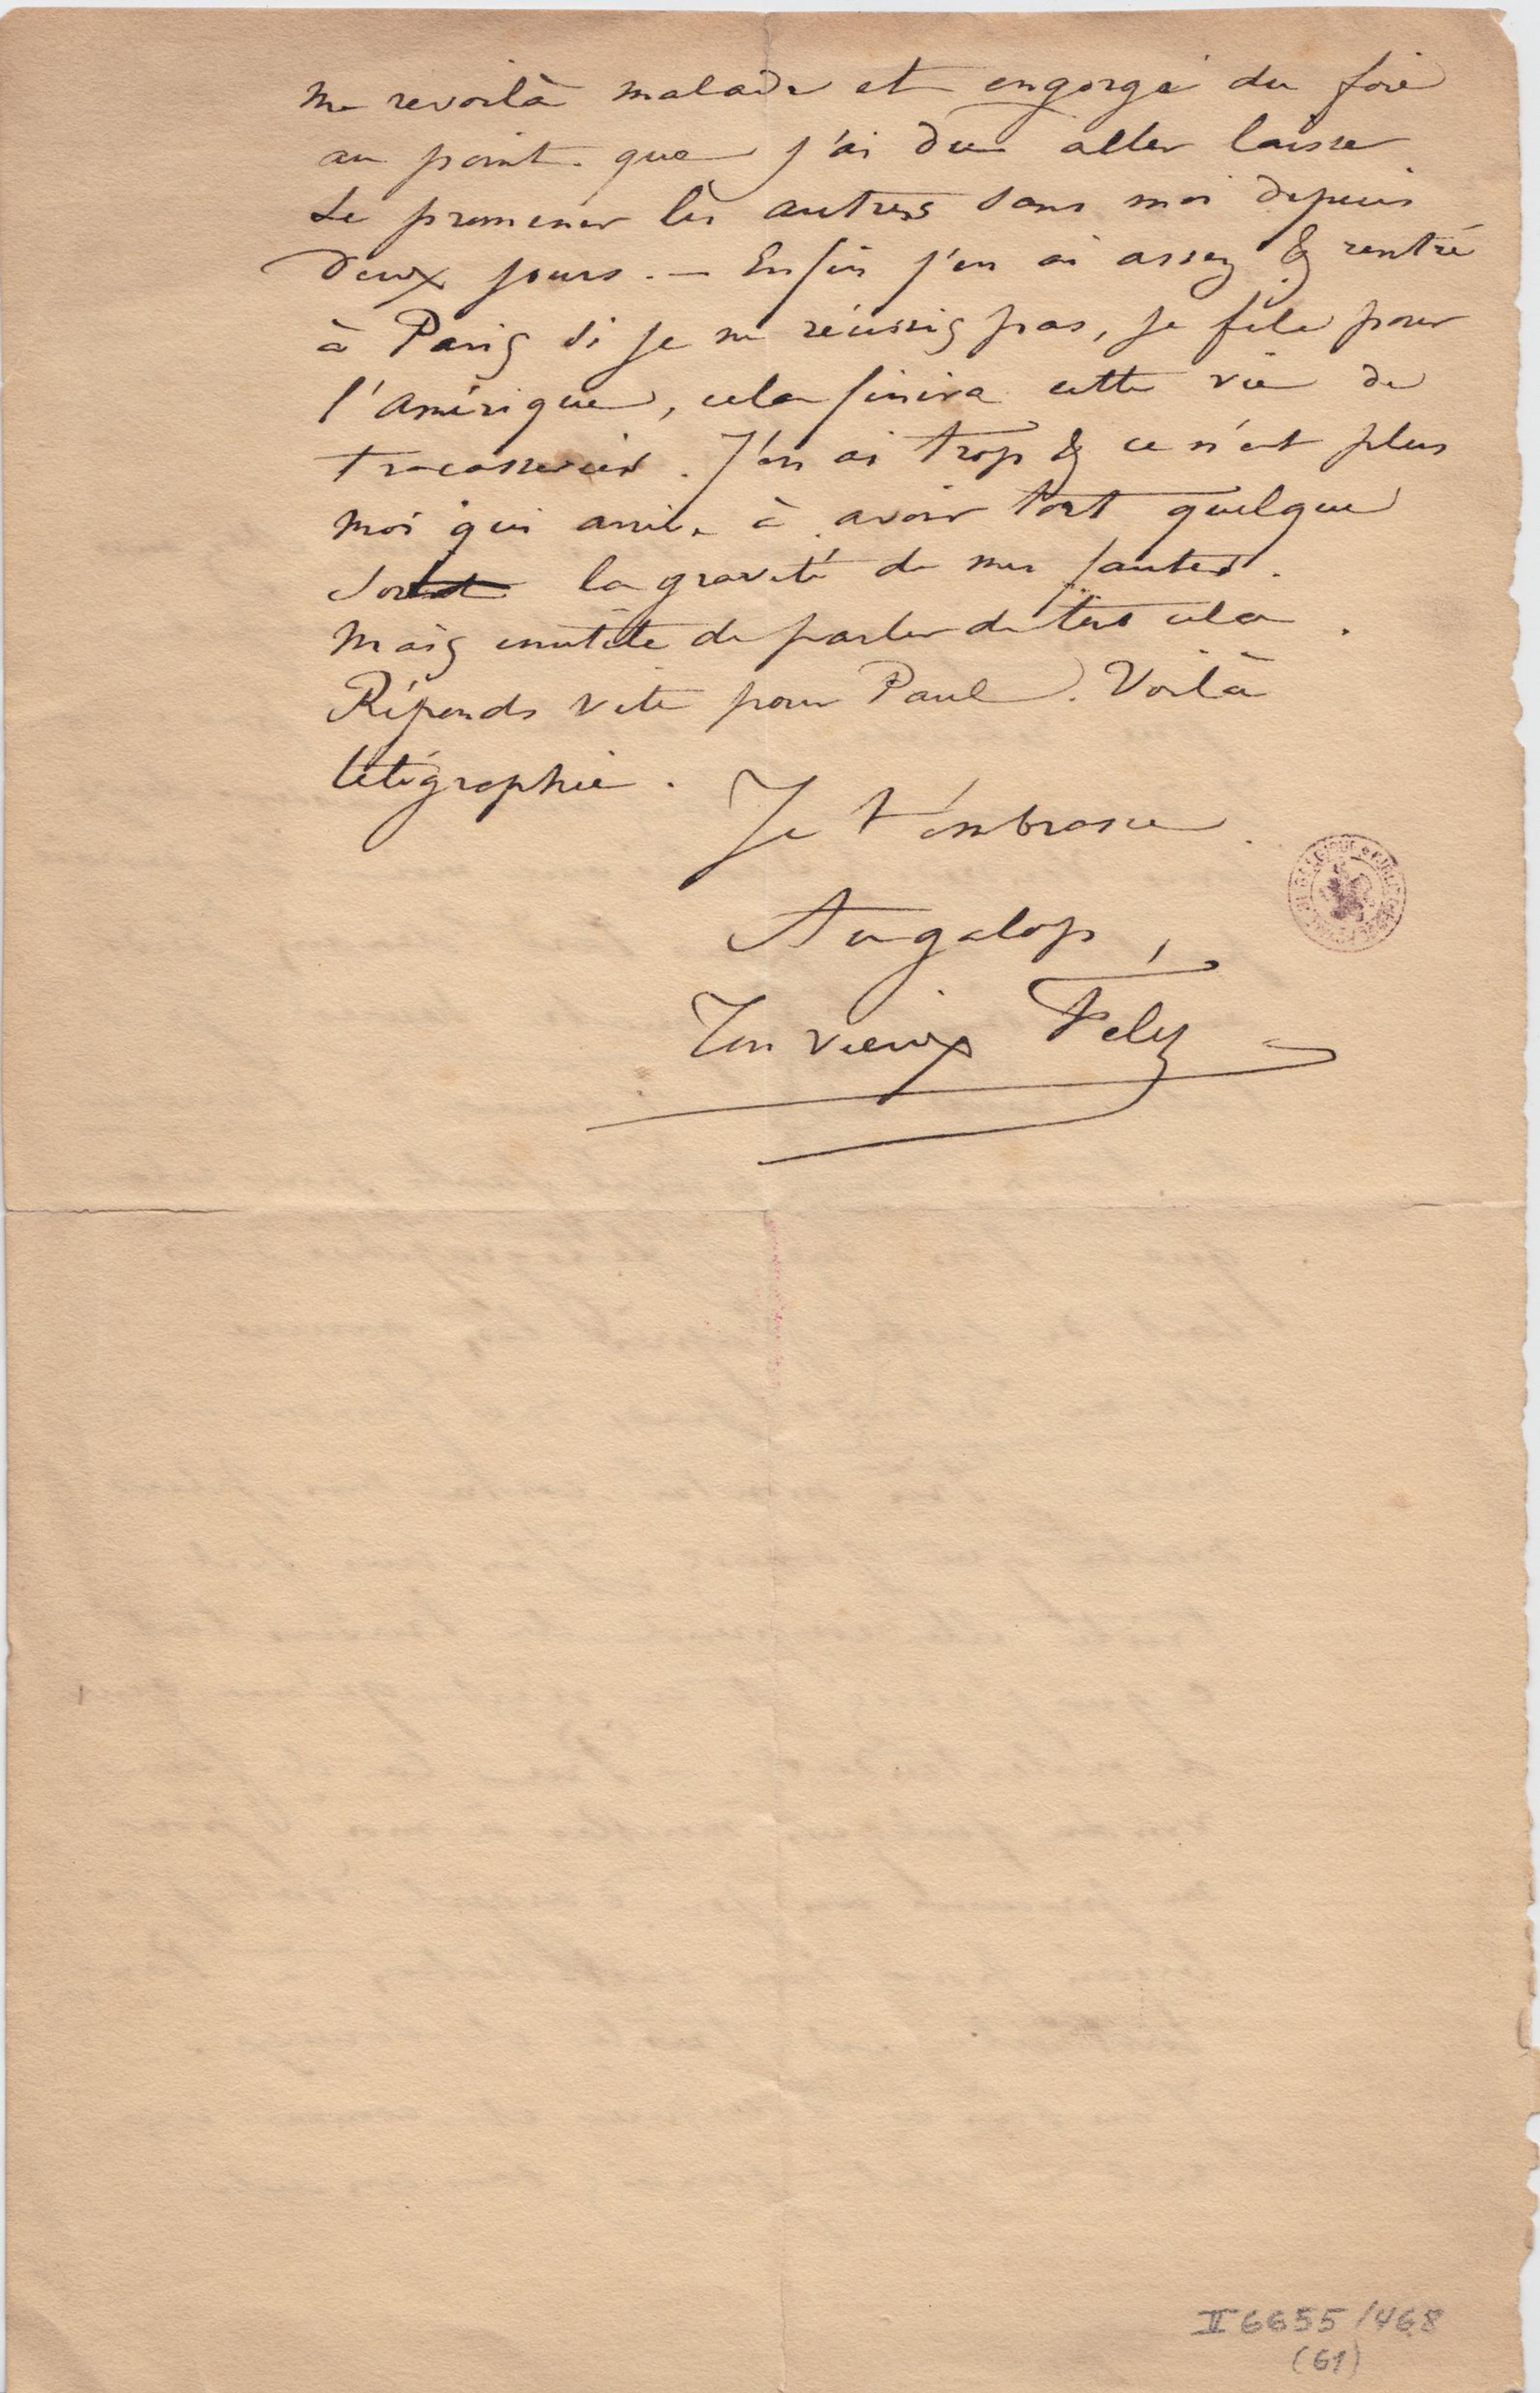 me revoilà malade et engorgé du foie
au point que j'ai du aller laisser
se promener les autres sans moi depuis
deux jours. — Enfin j'en ai assez & rentré
à Paris si je ne réussis pas, je file pour
l'Amérique, cela finira cette vie de
tracasseries. J'en ai trop & ce n'est plus
moi qui arrive à avoir tort quelque
soit la gravité de mes fautes.
Mais inutile de parler de tout cela.
Réponds vite pour Paul. Voilà
télégraphie.
Je t'embrasse.
Au galop,
Ton vieux Fély
II 6655/468
(61)